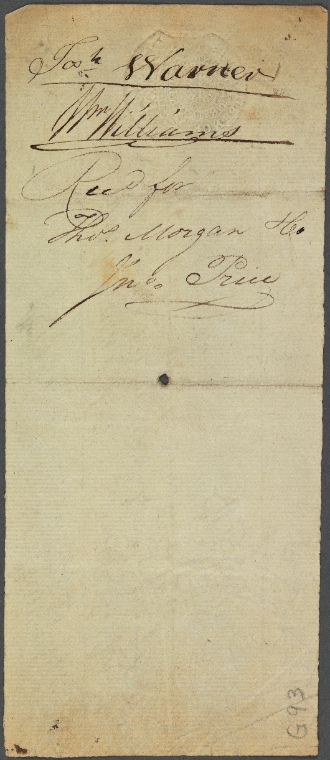 Josh Warner
Wm Williams
Recd for
Thos. Morgan
Jno. Price
G93